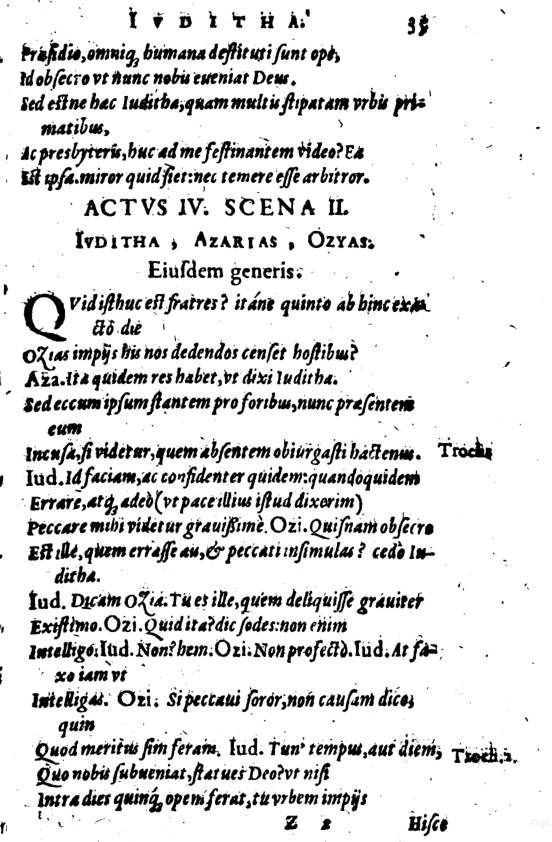 IVDITHA. 35
Præsidio, omniq; humana destituti sunt ope,
Id obsecro vt nunc nobis eueniat Deus.
Sed estne hæc Iuditha, quam multis stipatam vrbis pri-
matibus,
Ac presbyteris, huc ad me festinantem video? Ea
Est ipsa. miror quid fiet: nec temere esse arbitror.
ACTVS IV. SCENA II.
IVDITHA, AZARIAS, OZYAS.
Eiusdem generis.
QVid isthuc est fratres? itáne quinto ab hinc exa-
cto die
Ozias impijs his nos dedendos censet hostibus?
Aza. Ita quidem res habet, vt dixi Iuditha.
Sed eccum ipsum stantem pro foribus, nunc præsentem
eum
Incusa, si videtur, quem absentem obiurgasti hactenus. Trocha
Iud. Id faciam, ac confidenter quidem: quandoquidem
Errare, atq; adeò (vt pace illius istud dixerim)
Peccare mihi videtur grauißimè. Ozi. Quisnam obsecro
Est ille, quem errasse au, & peccati insimulas? cedo Iu-
ditha.
Iud. Dicam Ozia. Tu es ille, quem deliquisse grauiter
Existimo. Ozi. Quid ita? dic sodes: non enim
Intelligo. Iud. Non? hem. Ozi. Non profectò. Iud. At fa-
xo iam vt
Intelligas. Ozi. Si peccaui soror, non causam dico,
quin
Quod meritus sim feram. Iud. Tun' tempus, aut diem, Troch. 2.
Quo nobis subueniat, statues Deo? vt nisi
Intra dies quinq; opem ferat, tu vrbem impijs
Z 2 Hisce